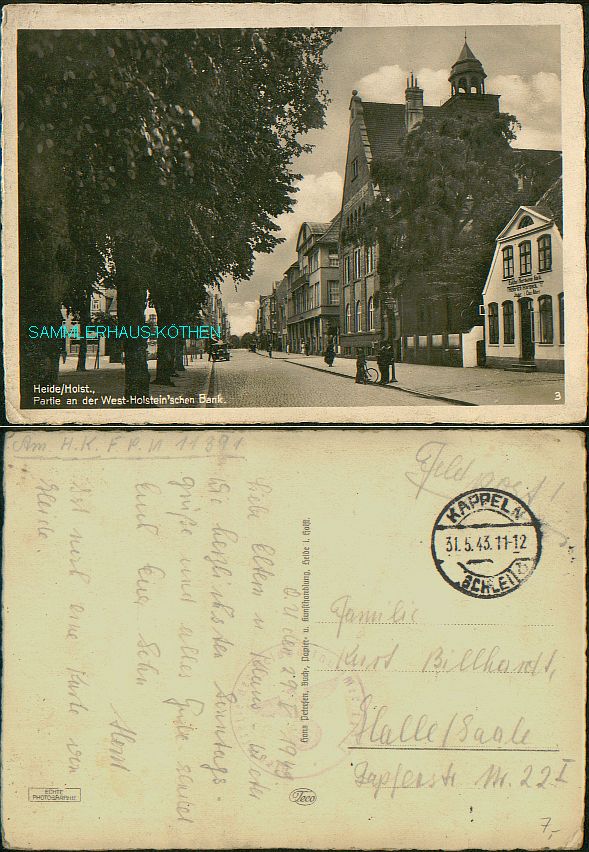 SAMMLERHAUS-KÖTHEN
Heide/Holst.,
Partie an der West-Holstein'schen Bank.
3
Am H.K. F.P.N 11391
Feldpost!
KAPPELN
31.5.43.11-12
(SCHLEI)
O.U. den
Liebe Eltern u. Klaus
Die herzlichsten Sonntags-
grüße und alles Gute sendet
Euch Euer Sohn
Horst
noch eine Karte von
Heide.
Hans Petersen, Buch-, Papier- u. Kunsthandlung, Heide i. Holst.
Familie
Kurt Billhardt,
Halle/Saale
Nr. 22 I
ECHTE
PHOTOGRAPHIE
Teco
7,-